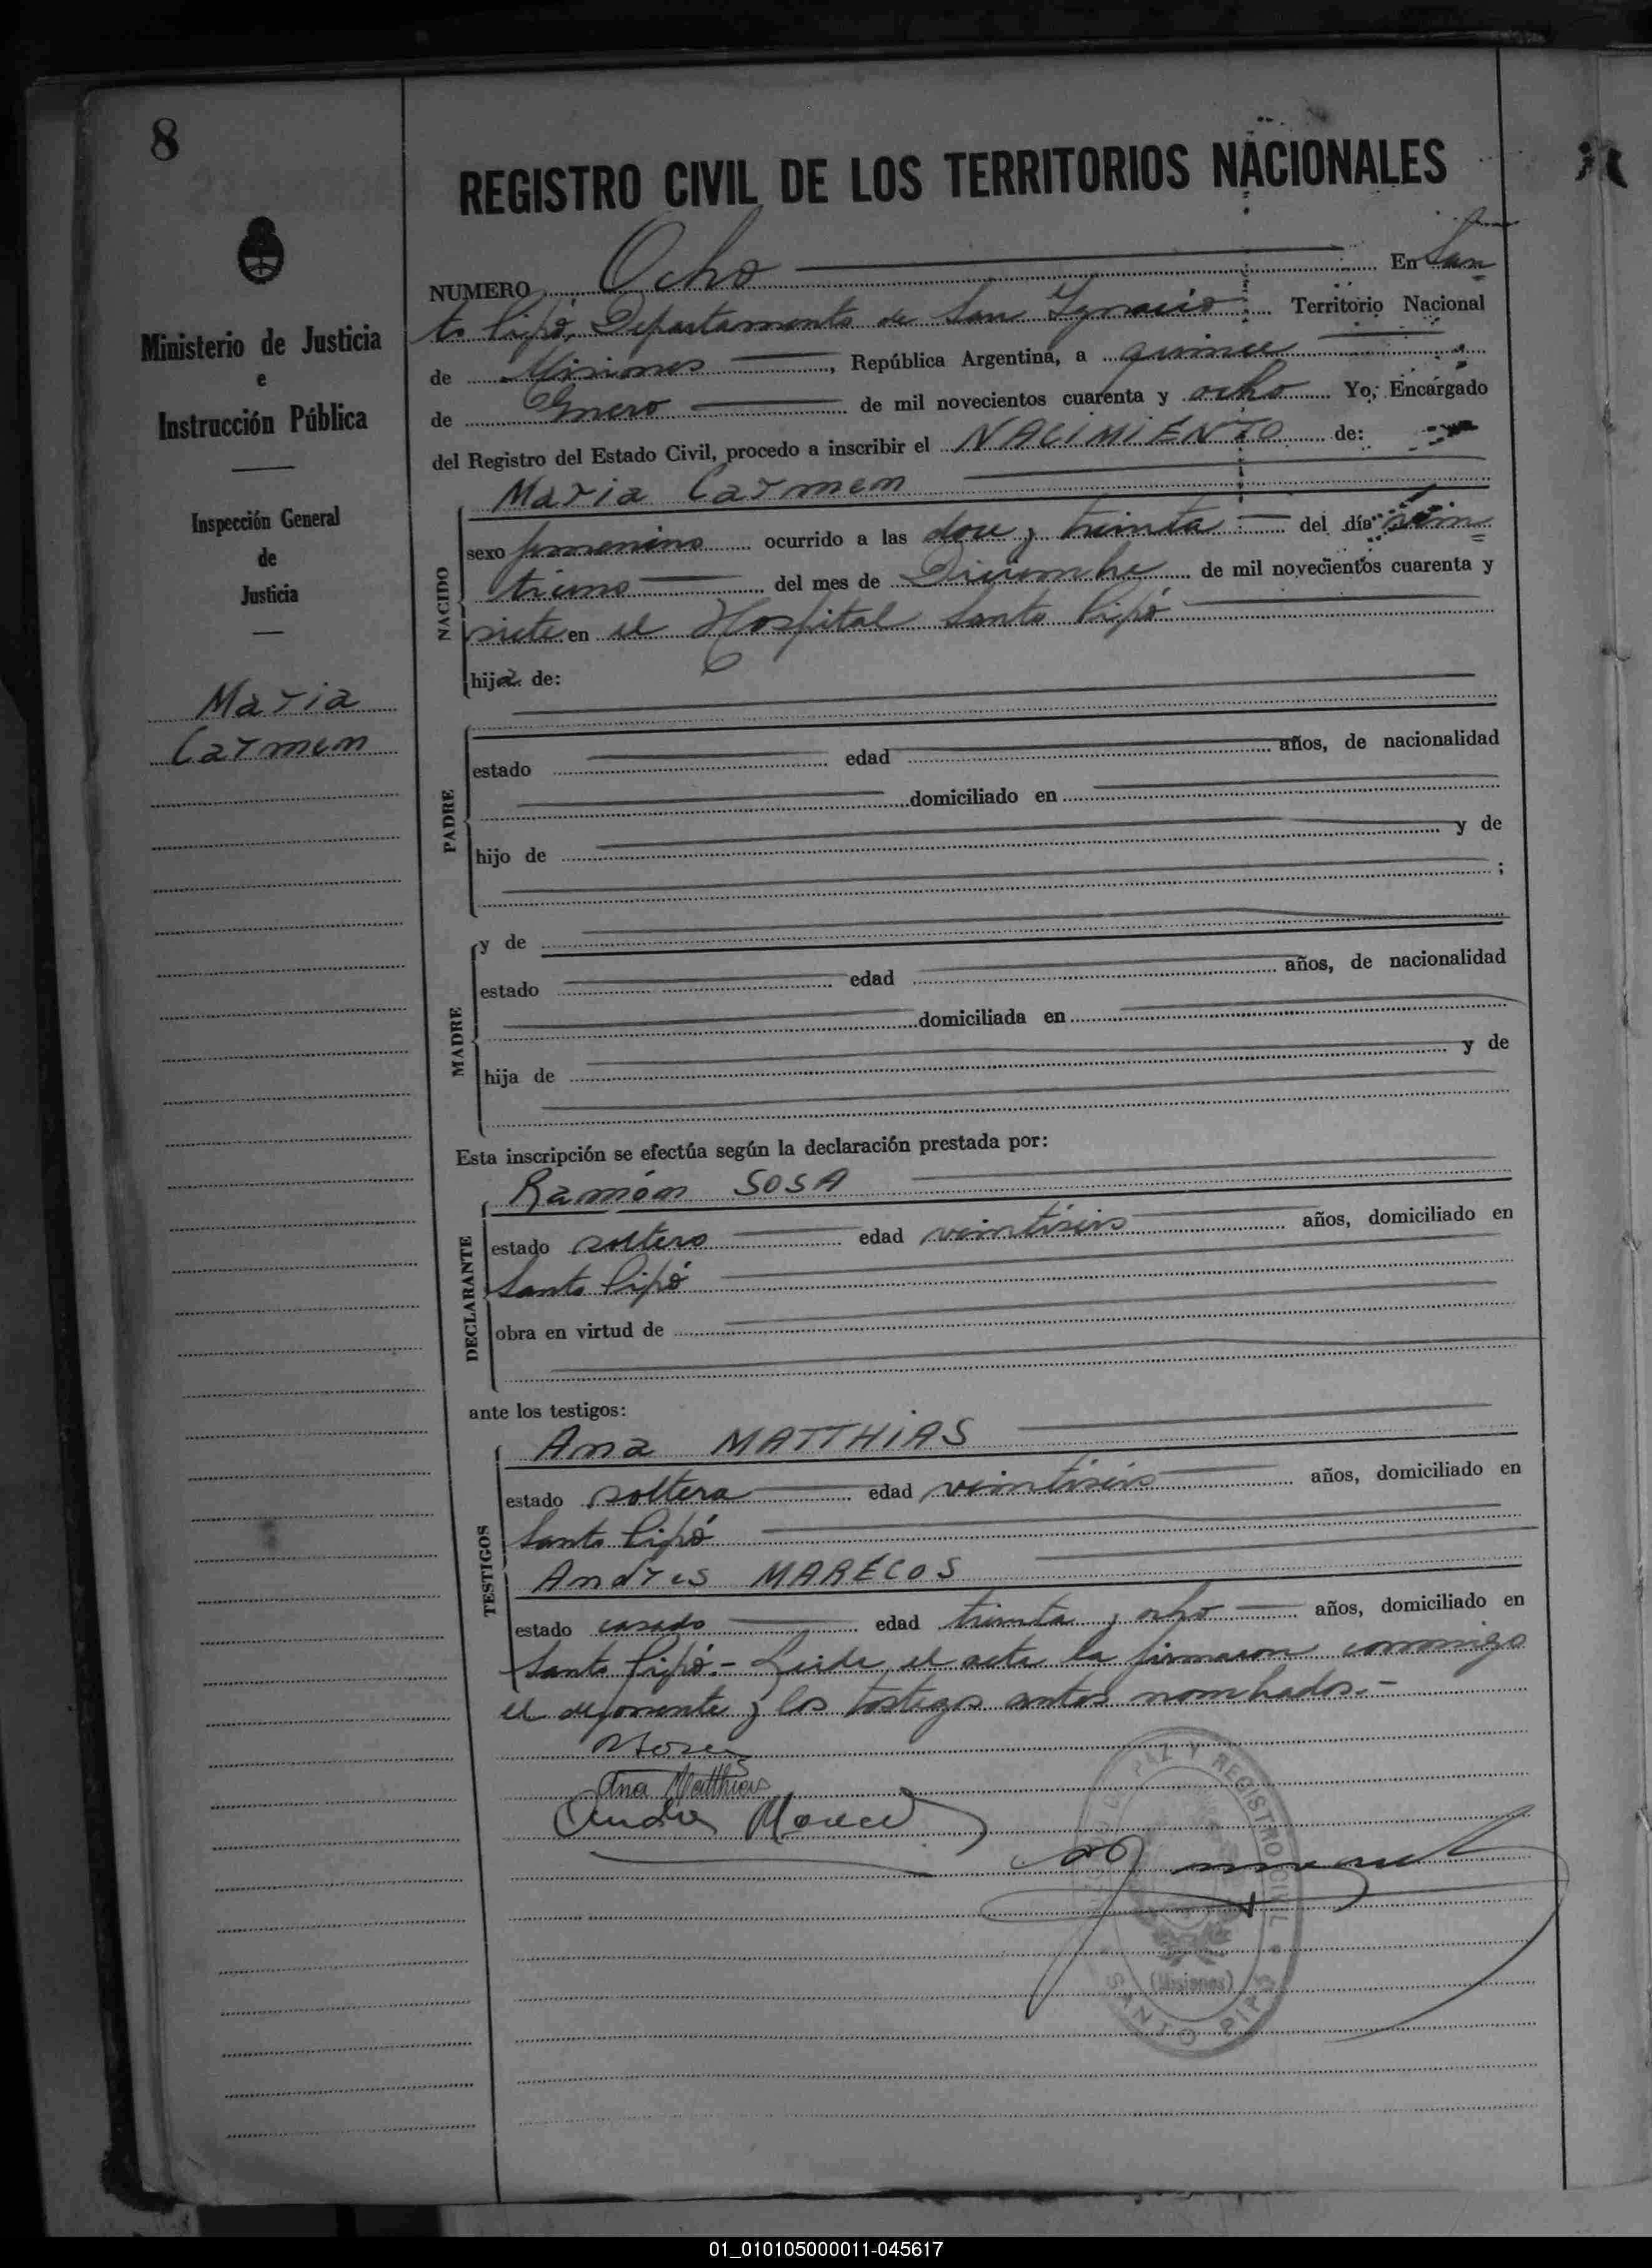 8
REGISTRO CIVIL DE LOS TERRITORIOS NACIONALES
Ministerio de Justicia
e
Instrucción Pública
Inspección General
de
Justicia
Maria
Carmen
NUMERO Ocho En San
to Pipó, Departamento de San Ygnacio Territorio Nacional
de Misiones, República Argentina, a quince
de Enero de mil novecientos cuarenta y ocho Yo, Encargado
del Registro del Estado Civil, procedo a inscribir el NACIMIENTO de:
NACIDO
Maria Carmen
sexo femenino ocurrido a las doce y treinta del día vein
tiuno del mes de Diciembre de mil novecientos cuarenta y
siete en el Hospital Santo Pipó
hija de:
PADRE
estado edad años, de nacionalidad
domiciliado en
hijo de y de
;
MADRE
y de
estado edad años, de nacionalidad
domiciliada en
hija de y de
Esta inscripción se efectúa según la declaración prestada por:
DECLARANTE
Ramón SOSA
estado soltero edad veintiseis años, domiciliado en
Santo Pipó
obra en virtud de
ante los testigos:
TESTIGOS
Ana MATTHIAS
estado soltera edad veintiseis años, domiciliado en
Santo Pipó
Andres MARECOS
estado casado edad treinta y ocho años, domiciliado en
Santo Pipó.- Leida el acta la firmaron conmigo
el deponente y los testigos antes nombrados.-
Ana Matthias
Andres
PAZ Y REGISTRO CIVIL
(Misiones)
SANTO PIPÓ
01_010105000011-045617